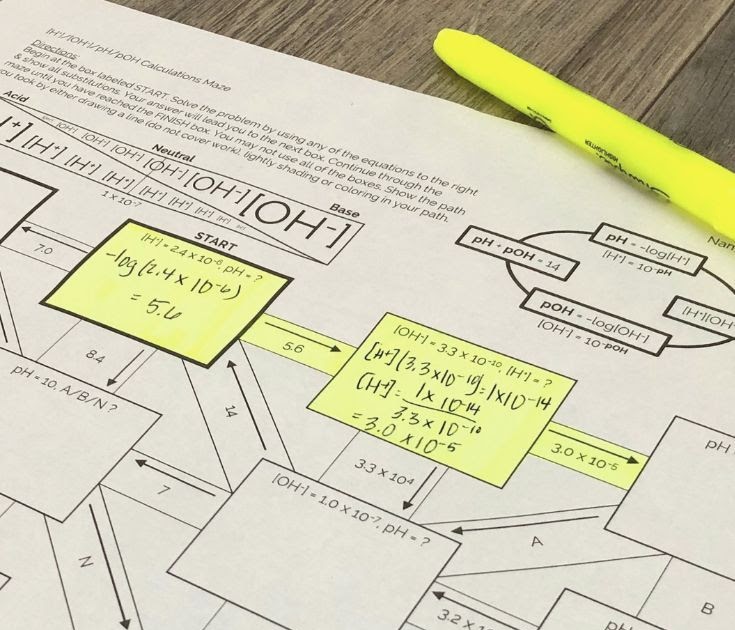 [H+]/[OH-]/pH/pOH Calculations Maze
Directions:
Begin at the box labeled START. Solve the problem by using any of the equations to the right
& show all substitutions. Your answer will lead you to the next box. Continue through the
maze until you have reached the FINISH box. You may not use all of the boxes. Show the path
you took by either drawing a line (do not cover work), lightly shading or coloring in your path.
Acid
Neutral
Base
[OH-] [OH-] [OH-] [OH-] [OH-] [OH-]
[H+] [H+] [H+] [H+] [H+] [H+] [H+] [H+]
1 x 10-7
START
[H+] = 2.4 x 10-6, pH = ?
-log(2.4 x 10-6)
= 5.6
7.0
5.6
8.4
14
[OH-] = 3.3 x 10-10, [H+] = ?
[H+](3.3x10-10)=1x10-14
[H+]= 1x 10-14
3.3x10-10
= 3.0 x 10-5
3.0 x 10-5
3.3 x 104
pH + pOH = 14
pH = -log[H+]
[H+] = 10-pH
pOH = -log[OH-]
[OH-] = 10-pOH
[H+][OH-
Nam
Sharpie
HIGHLIGHTER
pH = 10, A/B/N ?
7
[OH-] = 1.0 x 10-7, pH = ?
pH
A
N
B
3.2 x
pH